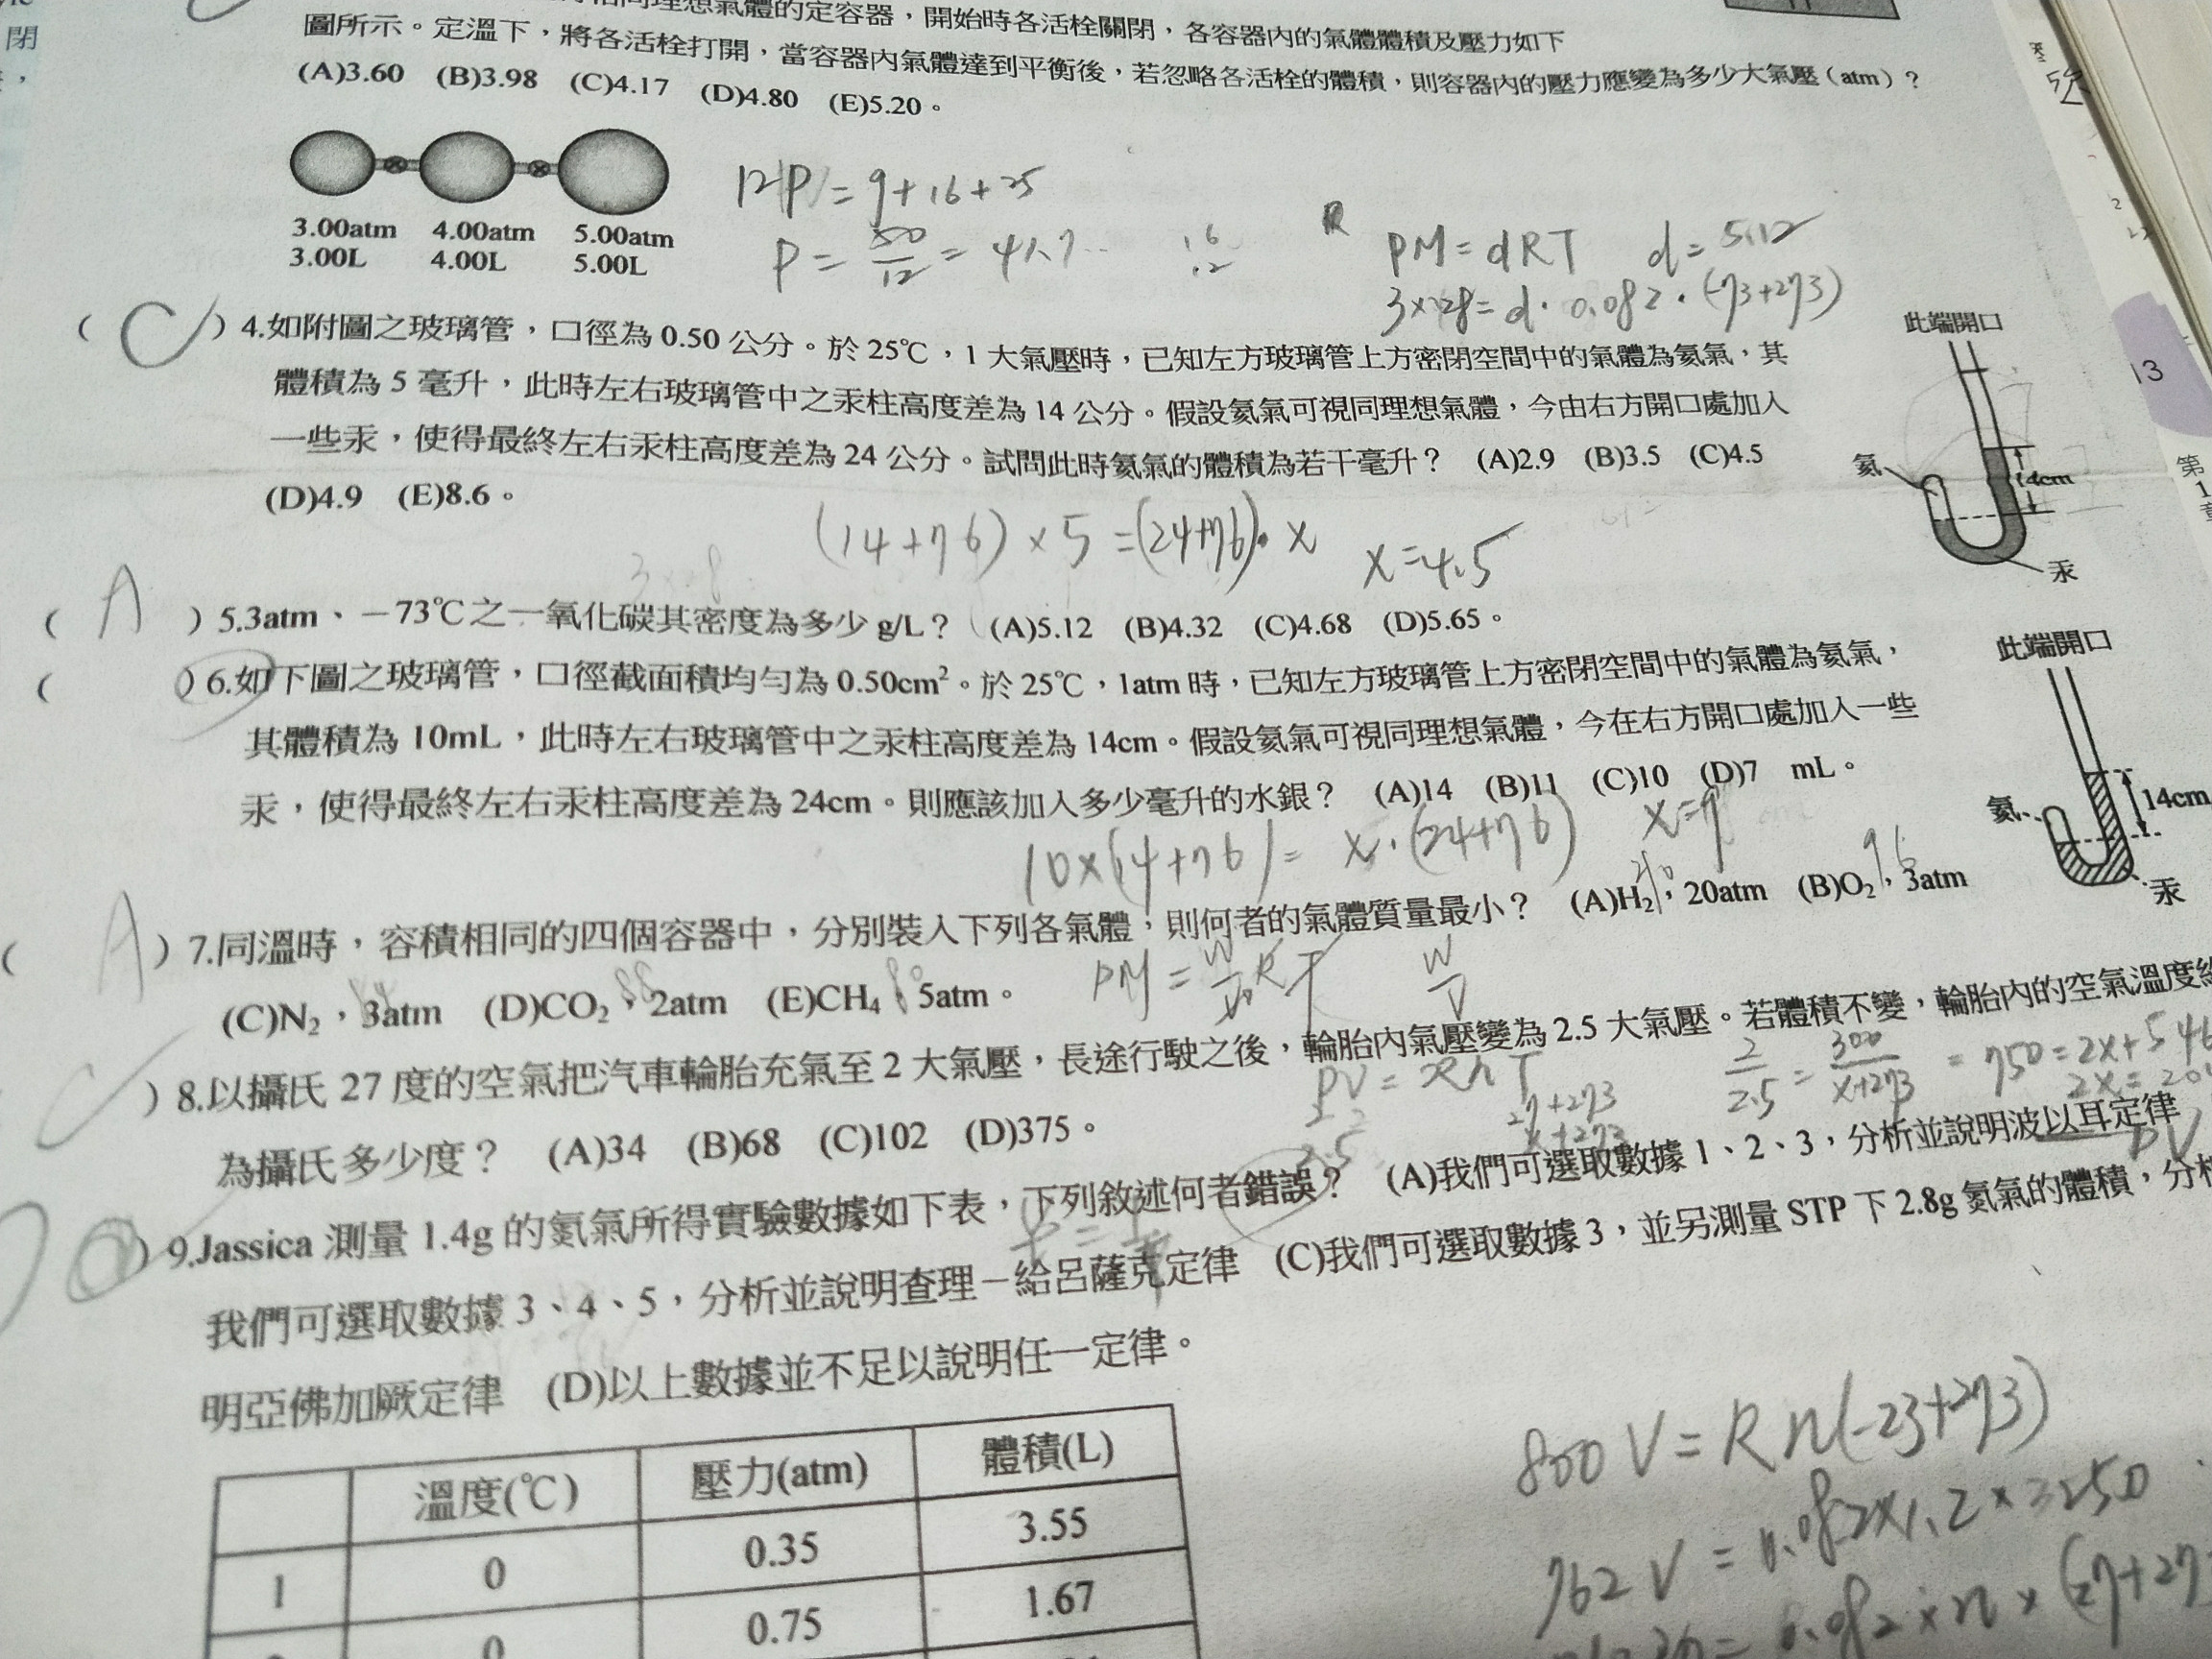 閉
相同理想氣體的定容器，開始時各活栓關閉，各容器內的氣體體積及壓力如下
圖所示。定溫下，將各活栓打開，當容器內氣體達到平衡後，若忽略各活栓的體積，則容器內的壓力應變為多少大氣壓（atm）？
(A)3.60 (B)3.98 (C)4.17 (D)4.80 (E)5.20。
12P=9+16+25
3.00atm 4.00atm 5.00atm
3.00L 4.00L 5.00L
P=50/12=4.17..
16
12
R
PM=dRT d=5.12
3×28=d·0.082·(-73+273)
( C )4.如附圖之玻璃管，口徑為 0.50 公分。於 25℃，1 大氣壓時，已知左方玻璃管上方密閉空間中的氣體為氦氣，其
體積為 5 毫升，此時左右玻璃管中之汞柱高度差為 14 公分。假設氦氣可視同理想氣體，今由右方開口處加入
一些汞，使得最終左右汞柱高度差為 24 公分。試問此時氦氣的體積為若干毫升？ (A)2.9 (B)3.5 (C)4.5
(D)4.9 (E)8.6。
此端開口
氦
14cm
汞
(14+76)×5=(24+76)·x x=4.5
( A )5.3atm、－73℃之一氧化碳其密度為多少 g/L？ (A)5.12 (B)4.32 (C)4.68 (D)5.65。
( )6.如下圖之玻璃管，口徑截面積均勻為 0.50cm²。於 25℃，1atm 時，已知左方玻璃管上方密閉空間中的氣體為氦氣，
其體積為 10mL，此時左右玻璃管中之汞柱高度差為 14cm。假設氦氣可視同理想氣體，今在右方開口處加入一些
汞，使得最終左右汞柱高度差為 24cm。則應該加入多少毫升的水銀？ (A)14 (B)11 (C)10 (D)7 mL。
此端開口
氦
14cm
汞
10×(14+76)=x·(24+76) x=9
96
( A )7.同溫時，容積相同的四個容器中，分別裝入下列各氣體，則何者的氣體質量最小？ (A)H₂，20atm (B)O₂，3atm
(C)N₂，3atm (D)CO₂，2atm (E)CH₄，5atm。
84 88 80
PM=W/V RT W/V
( C )8.以攝氏 27 度的空氣把汽車輪胎充氣至 2 大氣壓，長途行駛之後，輪胎內氣壓變為 2.5 大氣壓。若體積不變，輪胎內的空氣溫度約
為攝氏多少度？ (A)34 (B)68 (C)102 (D)375。
PV=RnT
27+273
x+273
2/2.5=300/x+273=750=2x+546
2x=204
)9.Jassica 測量 1.4g 的氮氣所得實驗數據如下表，下列敘述何者錯誤？ (A)我們可選取數據 1、2、3，分析並說明波以耳定律
我們可選取數據 3、4、5，分析並說明查理－給呂薩克定律 (C)我們可選取數據 3，並另測量 STP 下 2.8g 氮氣的體積，分析
明亞佛加厥定律 (D)以上數據並不足以說明任一定律。
溫度(℃) 壓力(atm) 體積(L)
1 0 0.35 3.55
0 0.75 1.67
800V=Rn(-23+273)
762V=0.082×1.2×3250
13
第
1
章